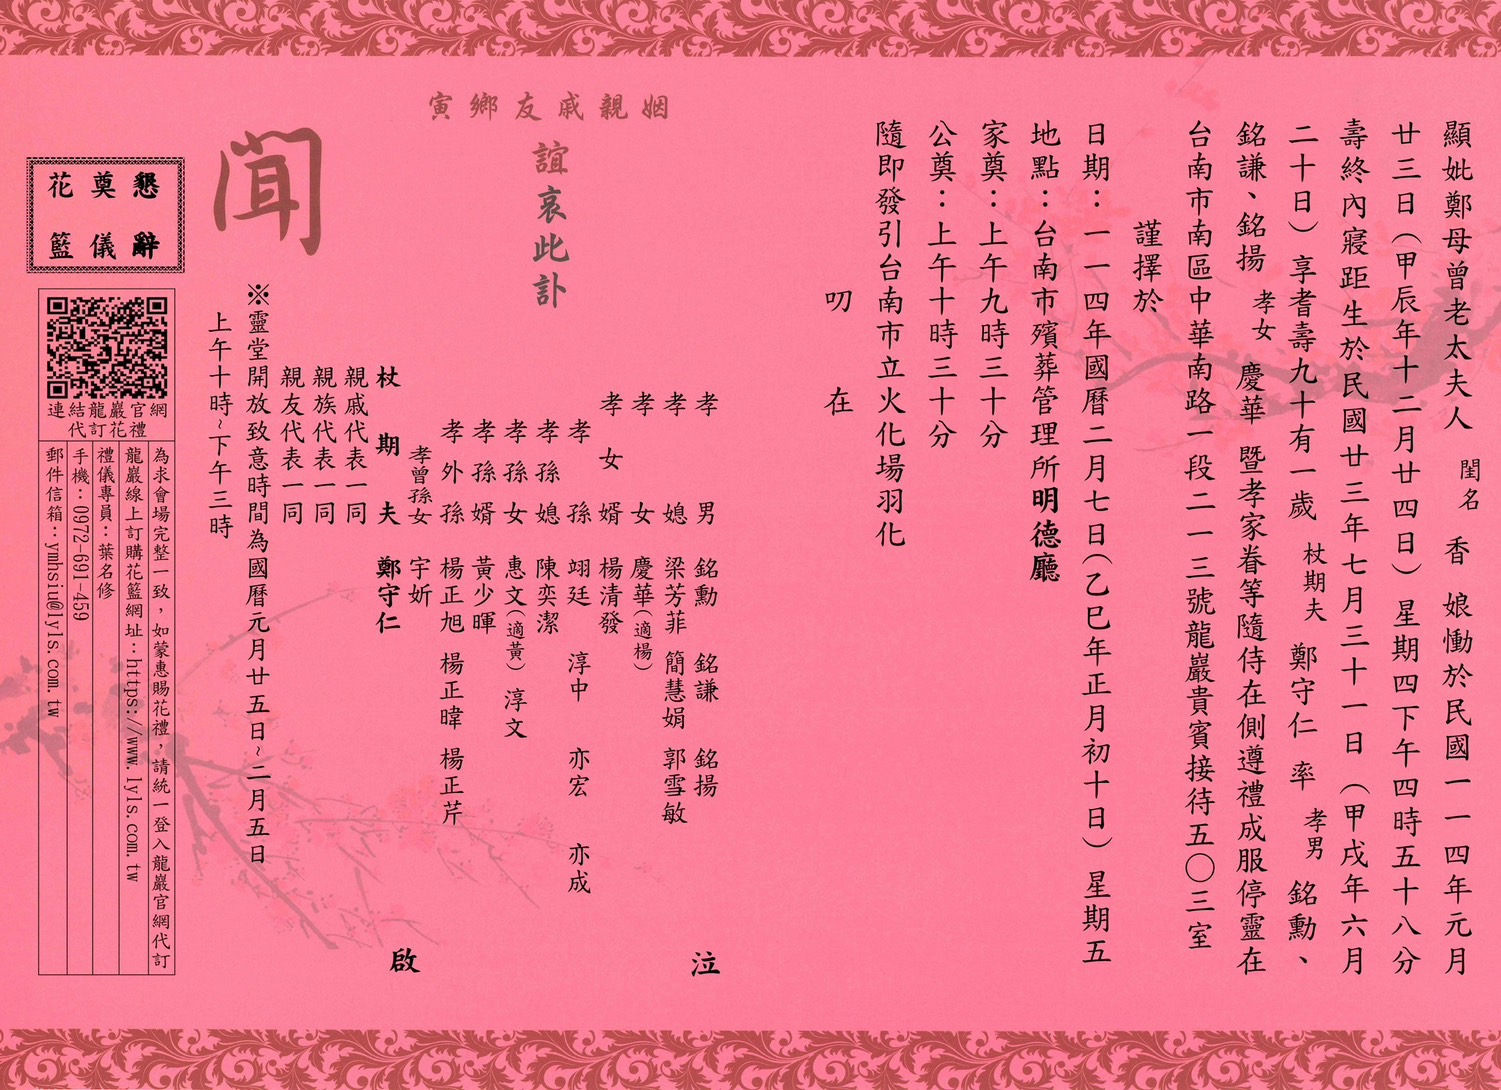 顯妣鄭母曾老太夫人 閨名 香 娘慟於民國一一四年元月
廿三日（甲辰年十二月廿四日）星期四下午四時五十八分
壽終內寢距生於民國廿三年七月三十一日（甲戌年六月
二十日）享耆壽九十有一歲 杖期夫 鄭守仁 率 孝男 銘勳、
銘謙、銘揚 孝女 慶華 暨孝家眷等隨侍在側遵禮成服停靈在
台南市南區中華南路一段二一三號龍巖貴賓接待五〇三室
謹擇於
日期：一一四年國曆二月七日（乙巳年正月初十日）星期五
地點：台南市殯葬管理所明德廳
家奠：上午九時三十分
公奠：上午十時三十分
隨即發引台南市立火化場羽化
叨 在
姻親戚友鄉寅
誼哀此訃
聞
孝男 銘勳 銘謙 銘揚 泣
孝媳 梁芳菲 簡慧娟 郭雪敏
孝女 慶華（適楊）
孝女婿 楊清發
孝孫 翊廷 淳中 亦宏 亦成
孝孫媳 陳奕潔
孝孫女 惠文（適黃） 淳文
孝孫婿 黃少暉
孝外孫 楊正旭 楊正暐 楊正芹
孝曾孫女 宇妡
杖期夫 鄭守仁 啟
親戚代表一同
親族代表一同
親友代表一同
※靈堂開放致意時間為國曆元月廿五日~二月五日
上午十時~下午三時
懇辭
奠儀
花籃
連結龍巖官網
代訂花禮
為求會場完整一致，如蒙惠賜花禮，請統一登入龍巖官網代訂
龍巖線上訂購花籃網址：https://www.lyls.com.tw
禮儀專員：葉名修
手機：0972-691-459
郵件信箱：ymhsiu@lyls.com.tw